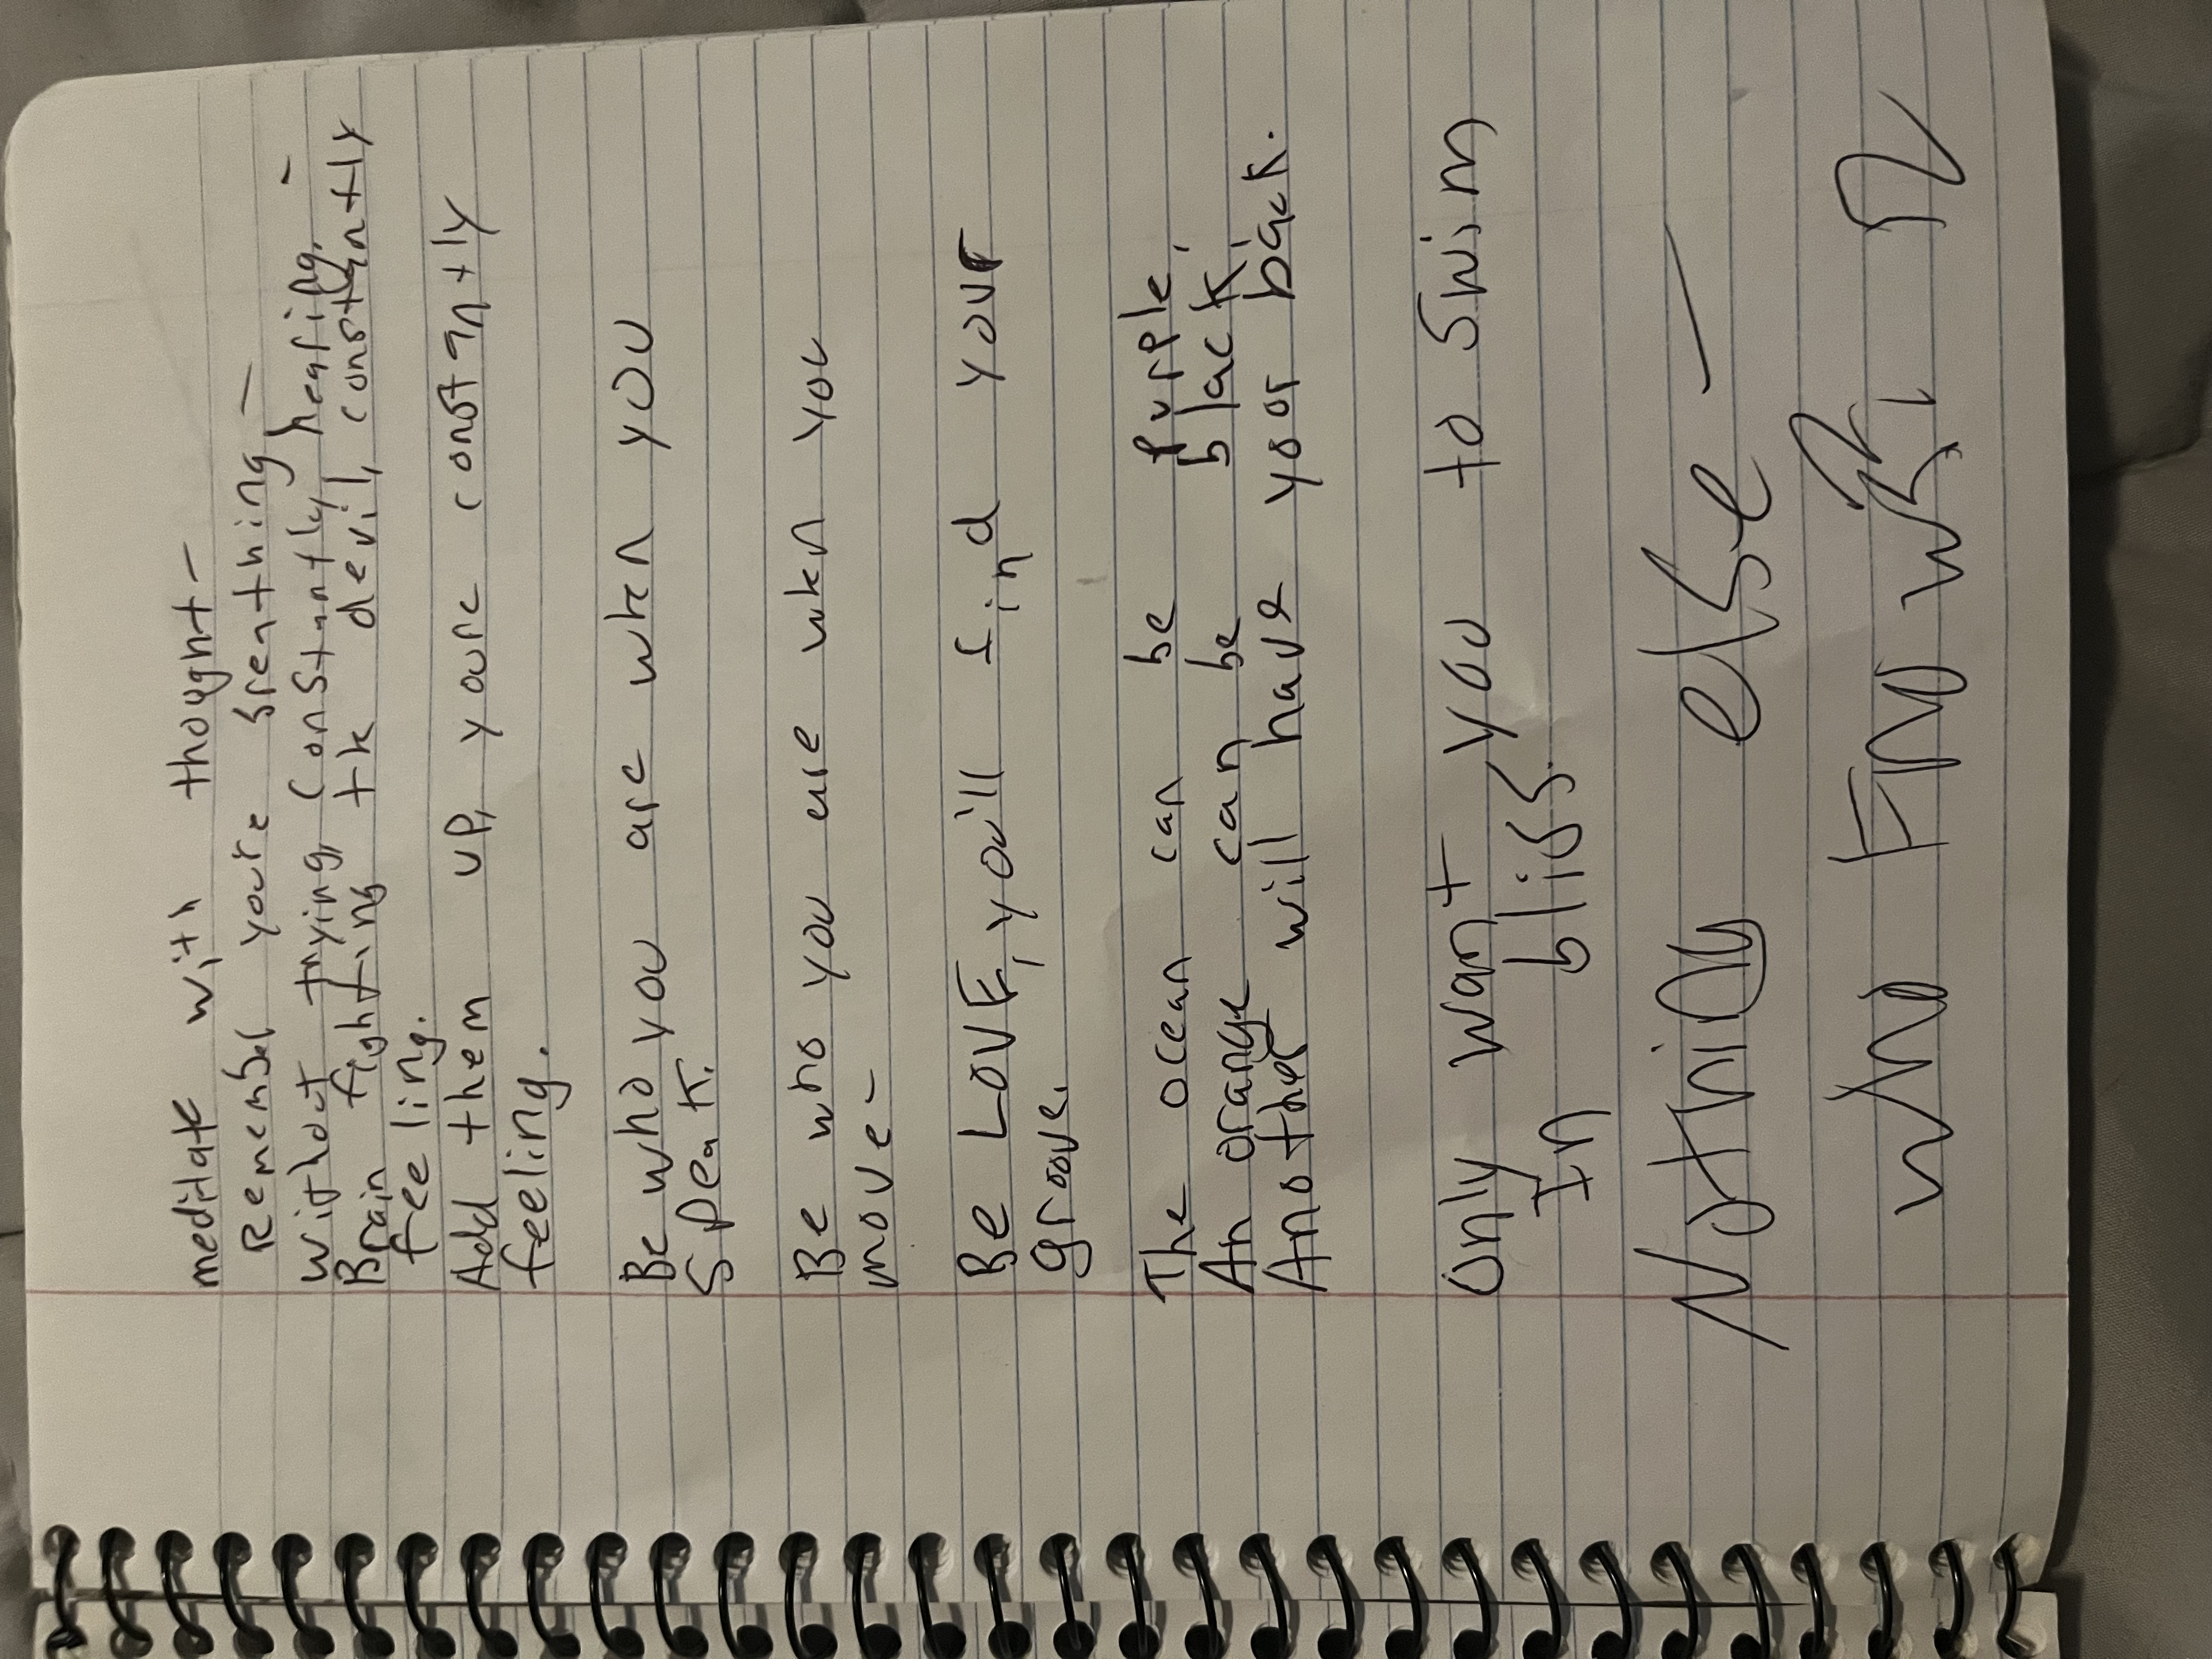 meditate with thought -
Remember you're breathing, -
without trying, constantly hearing. -
Brain fighting the devil, constantly
feeling.
Add them up, youre constantly
feeling.
Be who you are when you
speak.
Be who you are when you
move -
Be LOVE, you'll find your
groove.
The ocean can be purple,
An orange can be black,
Another will have your back.
Only want you to swim
In bliss.
Nothing else -
who knows?